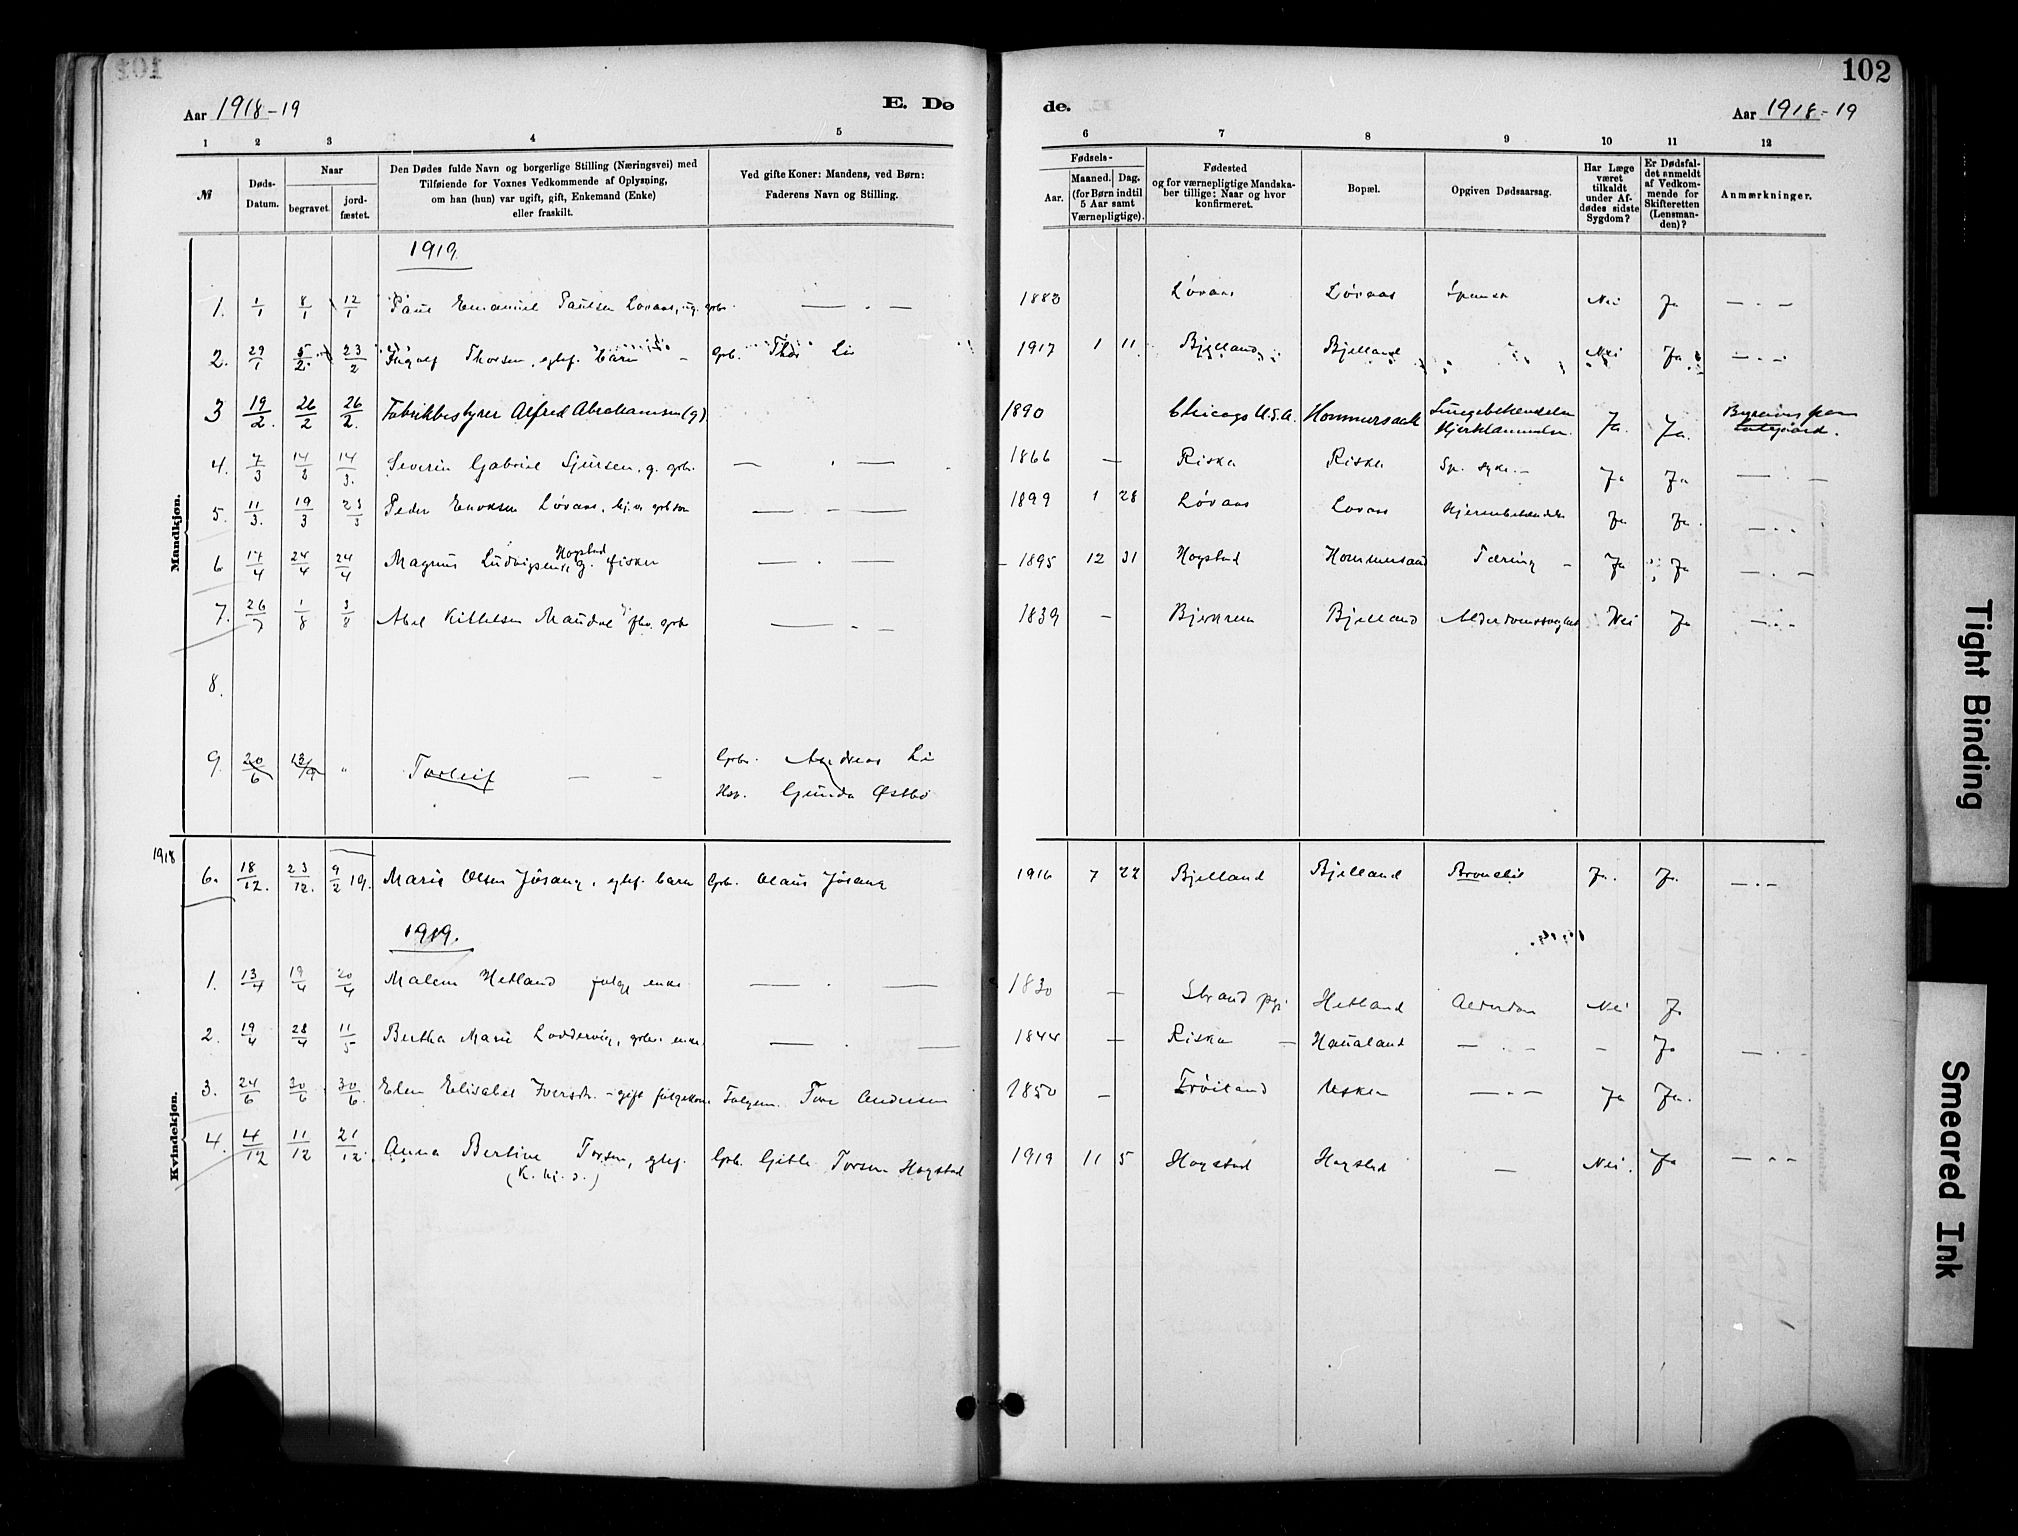 101
102
Aar 1918-19
E. Dø
de.
Aar 1918-19
1 2 3 4 5 6 7 8 9 10 11 12
№
Døds-Datum.
Naar
begravet.
jord-fæstet.
Den Dødes fulde Navn og borgerlige Stilling (Næringsvei) med
Tilføiende for Voxnes Vedkommende af Oplysning,
om han (hun) var ugift, gift, Enkemand (Enke)
eller fraskilt.
Ved gifte Koner: Mandens, ved Børn:
Faderens Navn og Stilling.
Fødsels-
Aar.
Maaned. Dag.
(for Børn indtil
5 Aar samt
Værnepligtige).
Fødested
og for værnepligtige Mandska-
ber tillige: Naar og hvor
konfirmeret.
Bopæl.
Opgiven Dødsaarsag.
Har Læge
været
tilkaldt
under Af-
dødes sidste
Sygdom?
Er Dødsfal-
det anmeldt
af Vedkom-
mende for
Skifteretten
(Lensman-
den)?
Anmærkninger.
Mandkjøn.
1919
1. 1/1 8/1 12/1 Paul Emanuel Paulsen Lovaas, ug. grbr. — . — 1882 Løvaas Løvaas Spansk Nei Ja — . —
2. 29/1 5/2 23/2 Ingolf Thorsen, egtef. barn — Grb. Thor Li 1917 1 11 Bjelland Bjelland " Nei Ja — . —
3 19/2 26/2 26/2 Fabrikbestyrer Alfred Abrahamsen (g). 1890 Chicago U.S.A. Hommersaak Lungebetændelse
Hjertelammelse. Ja. Ja.
4. 7/3 14/3 14/3. Severin Gabriel Sjursen, g. grbr. — . — 1866 — Riska Riska Sp. syke. — Ja Ja —
5. 11/3. 19/3 23/3 Peder Enoksen Løvaas, hj.v. grb søn — . — 1899 1 28 Løvaas Lovaas Hjernebetændelse Ja Ja. — . —
6 14/4 24/4 24/4 Magnus Ludvigsen Hogstad g. fisker — . — 1895 12 31 Hogstad Hommersand Tæring — Ja Ja — . —
7. 26/7 1/8 3/8 Abel Kittelsen Maudal flv. grbr — . — 1839 — Bjerkrem Bjelland Alderdomssvaghet Nei Ja — . —
8.
9. 20/6 13/9 " Torleif — — Grbr. Andreas Li
Hus. Gunda Østbø
Kvindekjøn.
1918
6. 18/12. 23/12. 9/2 19. Marie Olsen Jøsang, egtef. barn Grb. Olaus Jøsang 1916 7 22 Bjelland Bjelland Bronchit Ja. Ja. — . —
1919.
1. 13/4 19/4 20/4 Malene Hetland folge enke — . — 1830 — Strand pgj. Hetland Alderdom Nei Ja
2. 19/4 28/4 11/5 Bertha Marie Loddervig, grbr. enke. — . — 1844 — Riska — Haualand — . — – Ja — . —
3. 24/6 30/6 30/6 Elen Elisabet Iversdtr. — gift folgekone. Folgem. Tore Andersen 1850 — Frøiland Usken — . — Ja Ja.
4. 4/12 11/12 21/12. Anna Bertine Torsen, egtef. Grb. Gitle Torsen Hogstad 1919 11 5 Hogstad Hogstad — Nei. Ja — . —
(K. hj. d.)
Tight Binding
Smeared Ink